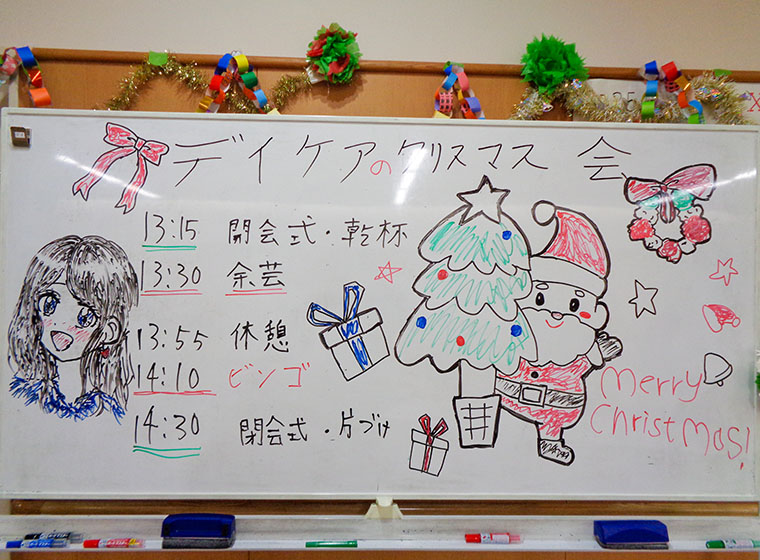 デイケアのクリスマス会
13:15 開会式・乾杯
13:30 余芸
13:55 休憩
14:10 ビンゴ
14:30 閉会式・片づけ
Merry
Christmas!